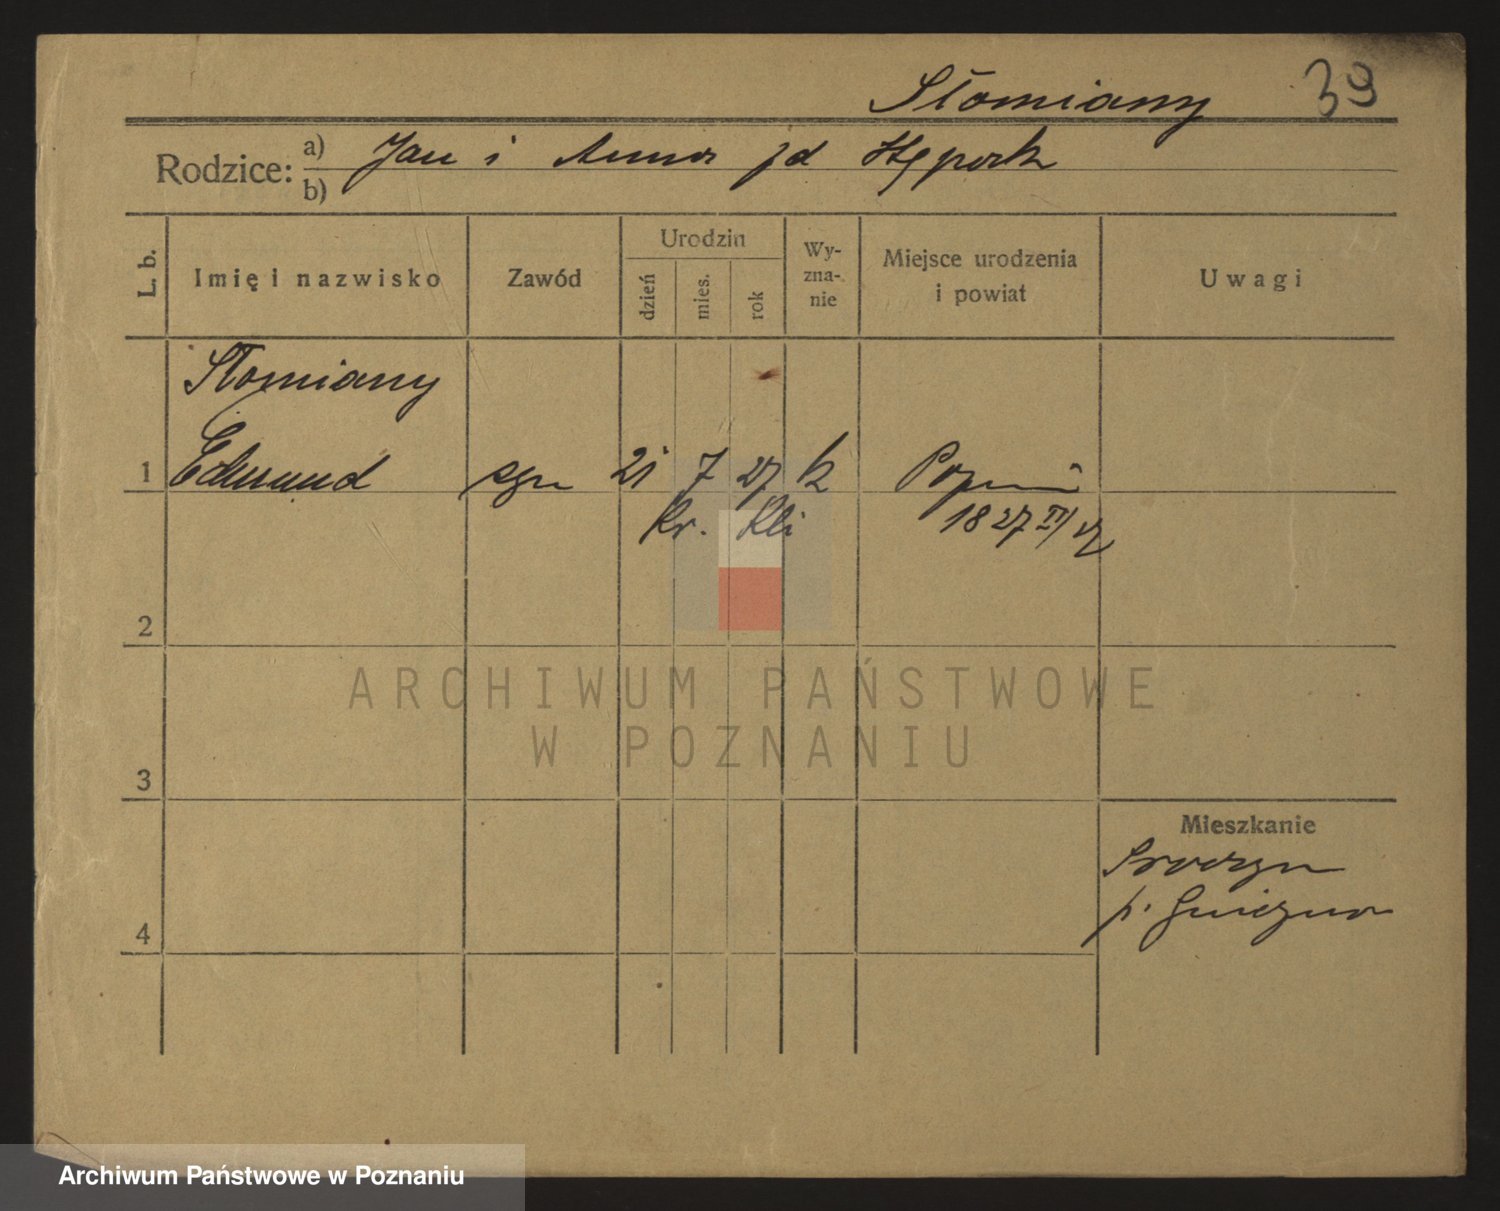 Słomiany 39
Rodzice: a) Jan i Anna zd
b)
L. b. Imię i nazwisko Zawód Urodzin dzień mies. rok Wy-zna-nie Miejsce urodzenia i powiat Uwagi
Słomiany
1 Edmund syn 21 7 27 k Poznań
Kr. Kli 1827 III/27
2
ARCHIWUM PAŃSTWOWE
W POZNANIU
3
Mieszkanie
p. Gniezno
4
Archiwum Państwowe w Poznaniu